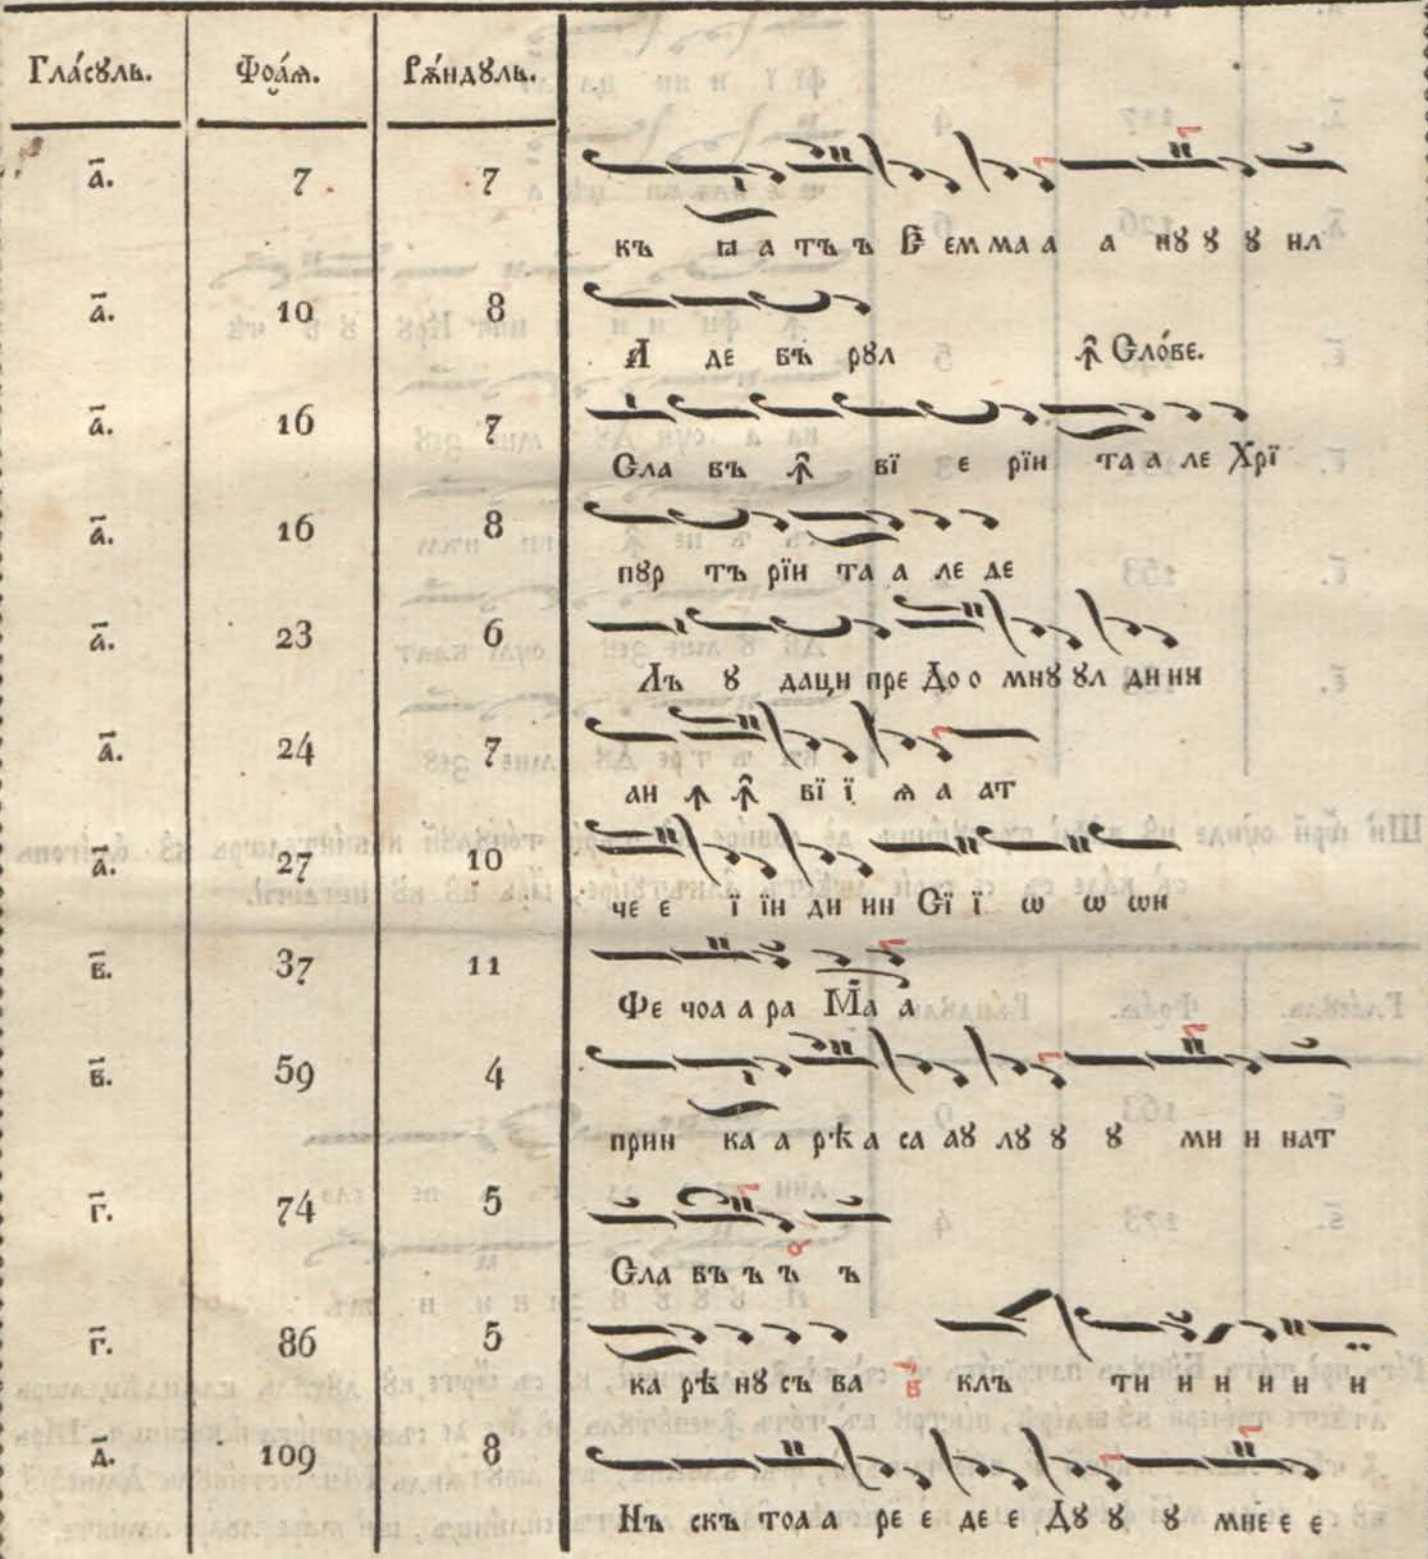 Гла́сꙋль. Фоа́ѧ. Рѫ́ндꙋль.
а҃. 7 7
къ ꙟ а тъ ъ Е҆ ем ма а а нꙋ ꙋ ꙋ ил
а҃. 10 8
А де въ рꙋл ꙟ Сло́ве.
а҃. 16 7
Сла въ ꙟ вї е рїн та а ле Хрї
а҃. 16 8
пꙋр тъ рїн та а ле де
а҃. 23 6
Лъ ꙋ даци пре До о мнꙋ ꙋл ди ин
а҃. 24 7
ан ꙟ ꙟ вї ї ѧ а ат
а҃. 27 10
че е ї їн ди ин Сї ї ѡ ѡ ѡн
в҃. 37 11
Фе чоа а ра Ма а
в҃. 59 4
прин ка а рѣ а са аꙋ лꙋ ꙋ ꙋ ми и нат
г҃. 74 5
Сла въ ъ ъ ъ
г҃. 86 5
ка рѣ нꙋ съ ва в клъ ти и и и и и
д҃. 109 8
Нъ скъ тоа а ре е де е Дꙋ ꙋ ꙋ мне е е